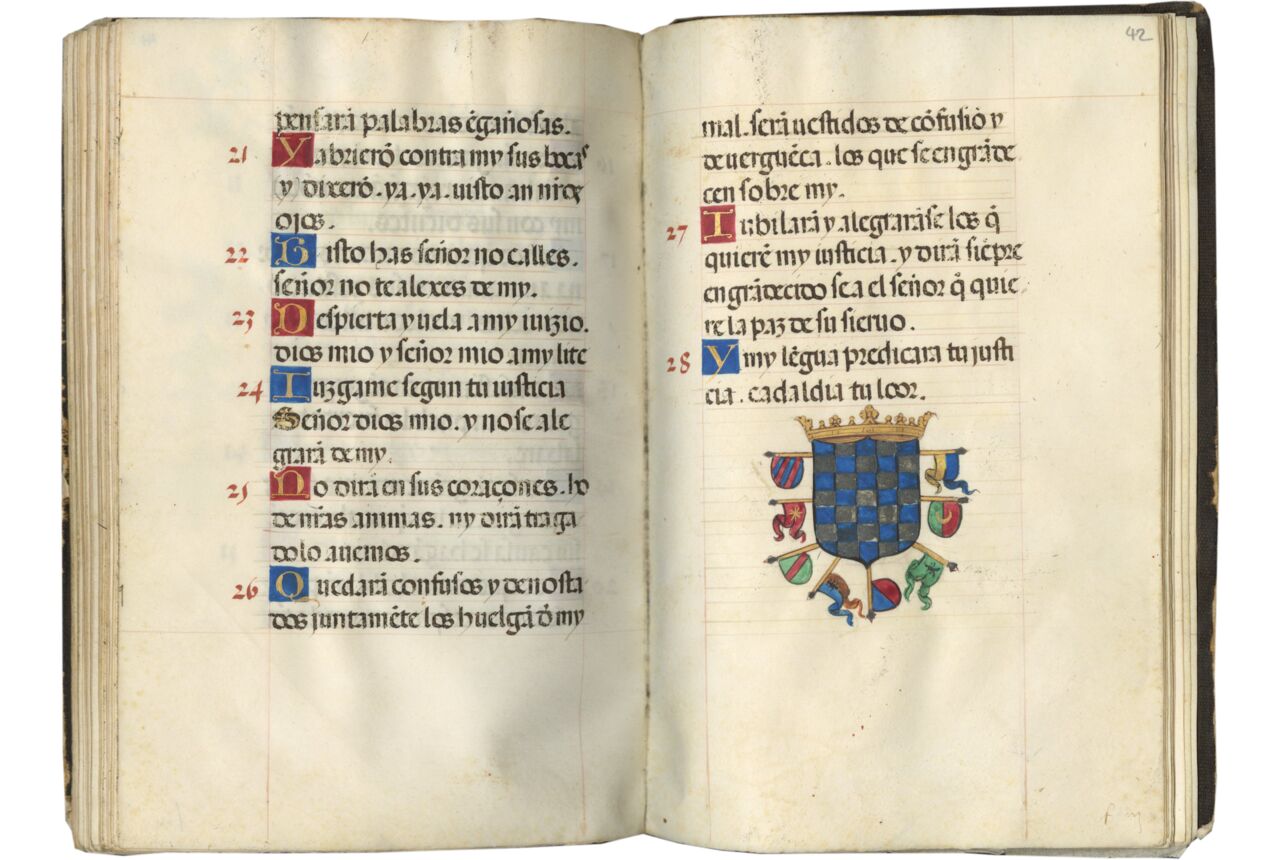 pensarã palabras ẽgañosas.
21 Y abrierõ contra my sus bocas
(y) dixerõ. ya. ya. uisto an nr̃os
ojos.
22 Uisto has señor no calles.
señor no te alexes de my.
23 Despierta y uela a my iuizio.
dios mio y señor mio a my lite
24 Iuzgame segun tu iusticia
Señor dios mio. y no se ale
grarã de my.
25 No dirã en sus coraçones. ho
de nr̃as animas. ny dirã traga
dolo auemos.
26 Quedarã confusos y denosta
dos juntamẽte los huelgã d̃ my
42
mal. serã uestidos de cõfusiõ y
de uerguẽça. los que se engrãde
cen sobre my.
27 Iubilarã y alegrarãse los q̃
quierẽ my iusticia. y dirã siẽpre
engrãdecido sea el señor q̃ quie
re la paz de su sieruo.
28 Y my lẽgua predicara tu justi
cia. cada al dia tu loor.